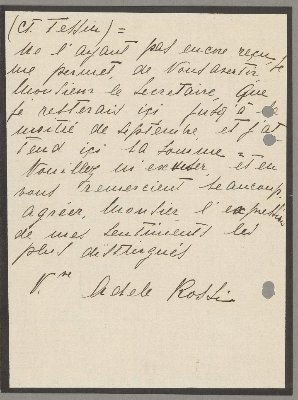 (Ct. Tessin) =
Ne l'ayant pas encore reçu, je
me permet de Vous avertir
Monsieur le Secretaire que
je resterais ici jusq'à la
moitié de septembre et j'at
tend ici la somme.
Veuillez m'excuser et en
vous remercient beaucoup
agréer, Monsier l'expression
de mes sentiments les
plus distingués
V.re Adele Rossi